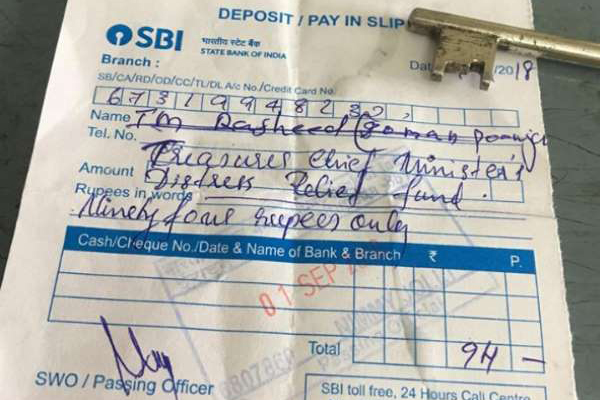 DEPOSIT / PAY IN SLIP
SBI भारतीय स्टेट बैंक
STATE BANK OF INDIA
Branch : Dat /2018
SB/CA/RD/OD/CC/TL/DL A/c No./Credit Card No.
67319948232
Name
Tel. No. Treasurer Chief Minister's
Amount Distress Relief fund.
Rupees in words
Ninety four rupees only
Cash/Cheque No./Date & Name of Bank & Branch ₹ P.
01 SEP
Total 94 –
SWO / Passing Officer
SBI toll free, 24 Hours Call Centre